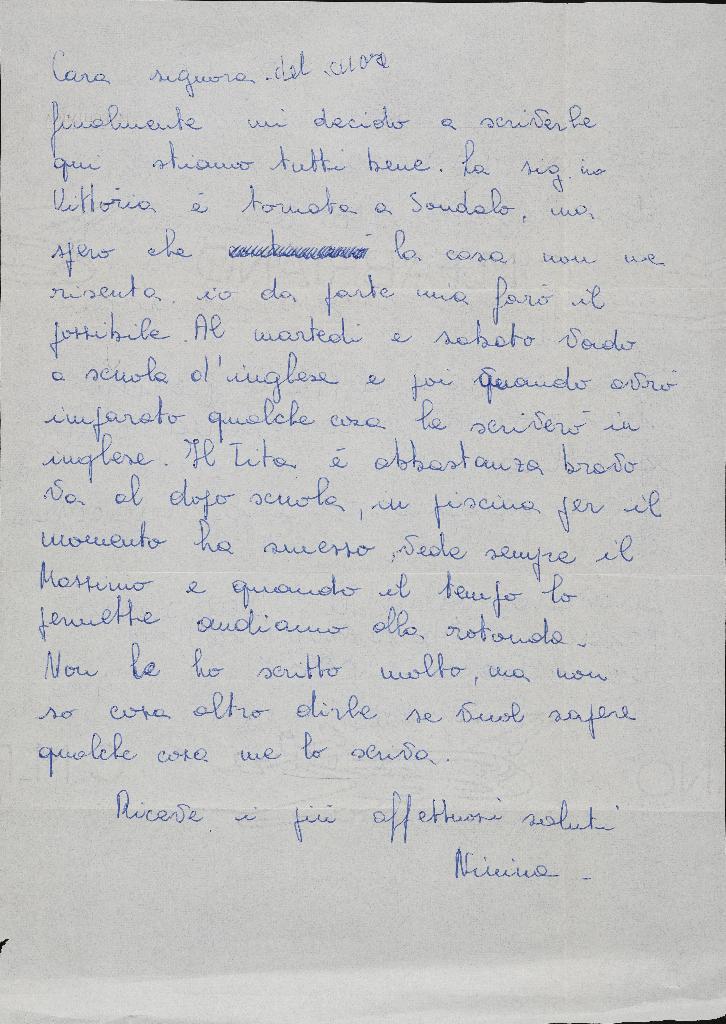 Cara signora del cuore
finalmente mi decido a scriverle
qui stiamo tutti bene. La sig. na
Vittoria é tornata a Sondalo, ma
spero che la casa non ne
risenta. io da parte mia faró il
possibile. Al martedi e sabato vado
a scuola d'inglese e poi quando avró
imparato qualche cosa le scriveró in
inglese. Il Tita é abbastanza bravo
va al dopo scuola, in piscina per il
momento ha smesso, vede sempre il
Massimo e quando il tempo lo
permette andiamo alla rotonda.
Non le ho scritto molto, ma non
so cosa altro dirle se vuol sapere
qualche cosa me lo scriva.
Riceve i più affettuosi saluti
Ninina -